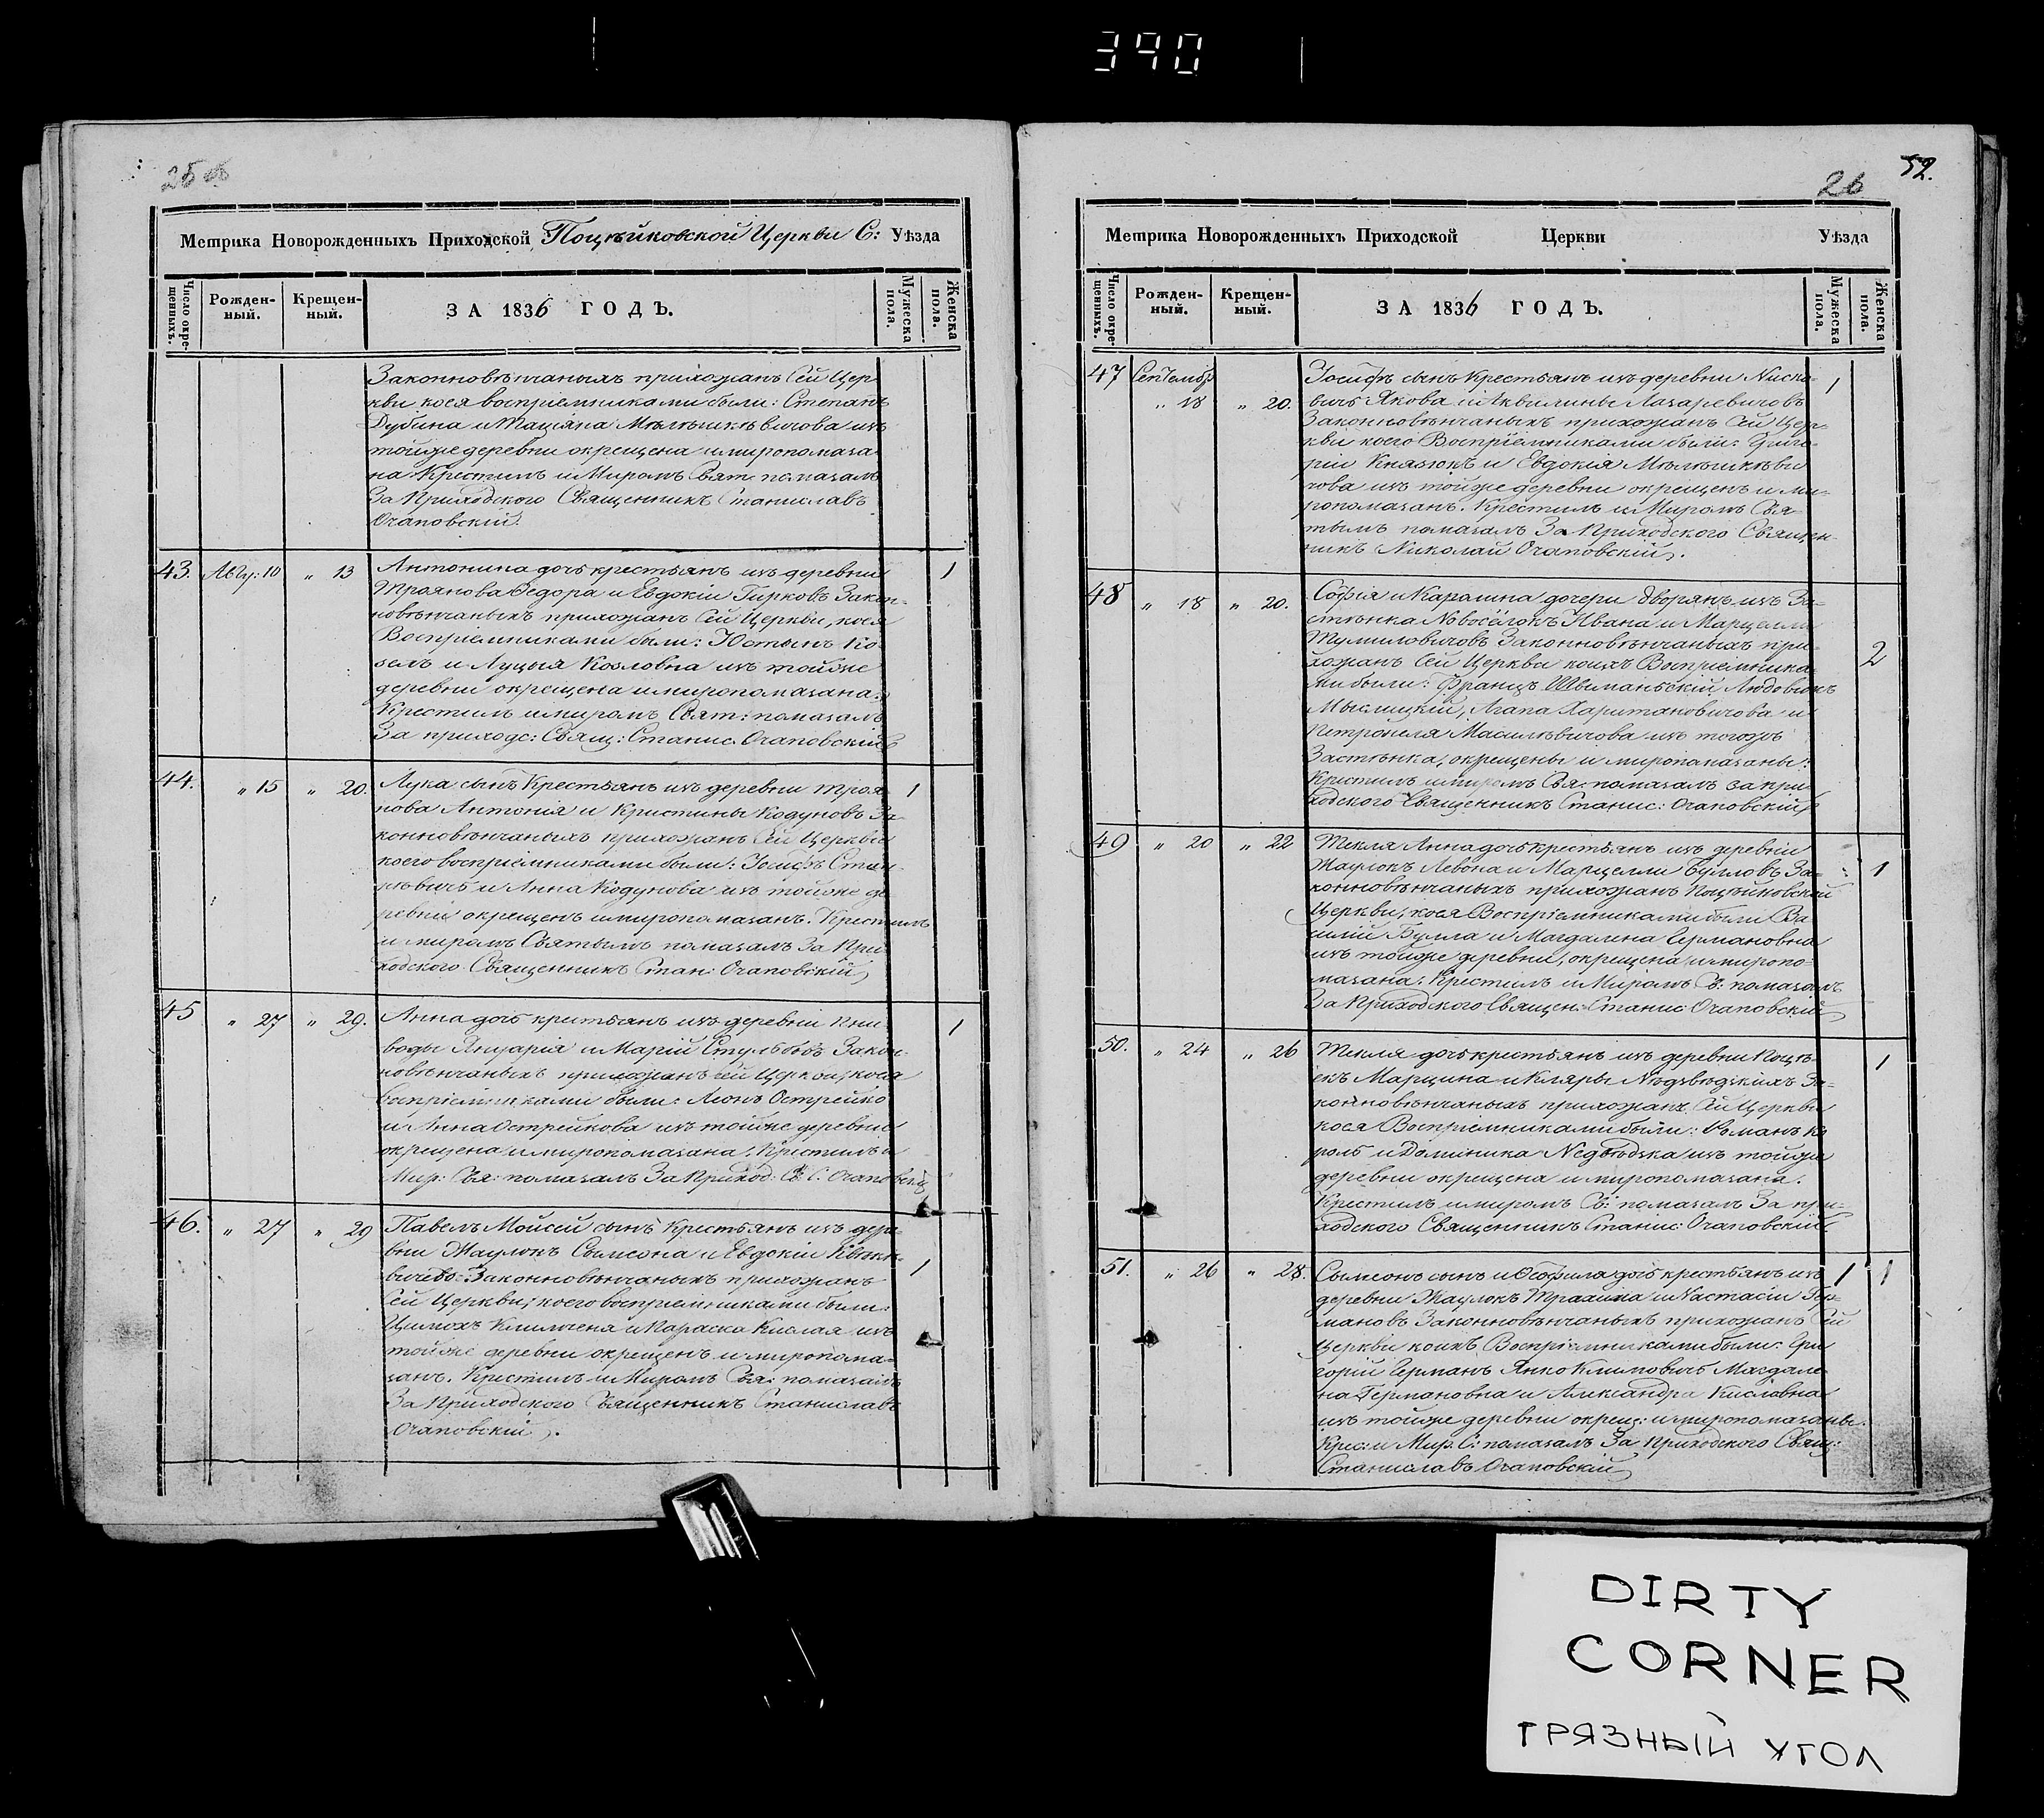 390
25 об
Метрика Новорожденныхъ Приходской Поцѣйковской Церкви С: Уѣзда
Число окрещенныхъ. Рожденный. Крещенный. ЗА 1836 ГОДЪ. Мужеска пола. Женска пола.
Законновѣнчаныхъ прихожанъ Сей Цер
кви коея восприемниками были: Степанъ
Дубина и Тацiяна изъ
тойже деревни окрещена и миропомаза
на Крестилъ и Миромъ Свят. помазалъ
За Приходского Священникъ Станиславъ
Очаповскiй.
43. Авгу: 10 „ 13 Антонина дочь крестьянъ изъ деревни 1
Троянова Ѳедора и Евдокiи Гирковъ Закон-
новѣнчаныхъ прихожанъ Сей Церкви, коея
Восприемниками были: Юстынъ Ко
зелъ и Луцыя Козловна изъ тойже
деревни окрещена и миропомазана.
Крестилъ и миромъ Свят: помазалъ
За приходс: Свящ: Станис. Очаповскiй
44. „ 15 „ 20. Лука сынъ Крестьянъ изъ деревни Троя 1
нова Антонiя и Кристины Кодуновъ За
конновѣнчаныхъ прихожанъ Сей Церкви
коего восприемниками были: Iосифъ
и Анна Кодунова изъ тойже де
ревни окрещенъ и миропомазанъ. Крестилъ
и миромъ Святымъ помазалъ За При
ходского Священникъ Стан: Очаповскiй
45 „ 27 „ 29. Анна дочь критьянъ изъ деревнi Кни 1
воды Януарiя и Марiй Закон-
новѣнчаныхъ прихожанъ сей Церкви, коея
восприемниками были: Леонъ Острейко
и Анна Острейкова изъ тойже деревни
окрещена и миропомазана. Крестилъ и
Мир: Свя: помазалъ За Приход: Св: С. Очаповскiй
46. „ 27 „ 29 Павелъ Мойсей сынъ Крестьянъ изъ дере
вни Жаулокъ Сымеона и Евдокiи
вичевъ Законновѣнчаныхъ прихожанъ 1
Сей Церкви, коего восприемниками были:
Цимохъ Климченя и Параска Кислая изъ
тойже деревни окрещенъ и миропома-
занъ. Крестилъ и Миромъ Свя: помазалъ
За Приходского Священникъ Станиславъ
Очаповскiй.
52.
26
Метрика Новорожденныхъ Приходской Церкви Уѣзда
Число окрещенныхъ. Рожденный. Крещенный. ЗА 1836 ГОДЪ. Мужеска пола. Женска пола.
47 Сентембр Iосифъ сынъ Крестьянъ изъ деревни 1
„ 18 „ 20. Якова и Аквилины Лазаревичовъ
Законновѣнчаныхъ прихожанъ Сей Цер-
кви коего Восприемниками были: Григо-
рiи Князюкъ и Евдокiя
изъ тойже деревни окрещенъ и ми-
ропомазанъ. Крестилъ и Миромъ Свя-
тымъ помазалъ За Приходского Священ-
никъ Николай Очаповскiй.
48 „ 18 „ 20. Софiя и Каралина дочери дворянъ изъ За-
стѣнка Новосёлокъ Ивана и Марцеллы
Тумиловичовъ Законновѣнчаныхъ при-
хожанъ Сей Церкви коихъ Восприемника 2
ми были: Францъ Шыманьскiй Людовикъ
Мыслицкiй, Агапа Харитановичова и
Петронеля Масилѣвичова изъ тогожъ
Застѣнка, окрещены и миропамазаны:
Крестилъ и миромъ Свя: помазалъ за при
ходского Священникъ Станис: Очаповскiй
49 „ 20 „ 22 Текля Анна дочь крестьянъ изъ деревнi
Жаулокъ Левона и Марцелли Булловъ За- 1
конновѣнчаныхъ прихожанъ Поцѣйковской
Церкви, коея Восприемниками были Ва
силiй Булла и Магдалена Германовна
изъ тойже деревни, окрещена и миропо-
мазана: Крестилъ и Миромъ С: помазалъ
За Приходского Священ: Станис: Очаповскiй
50. „ 24 „ 26 Текля дочь крестьянъ изъ деревни Поцѣ- 1
екъ Марцина и Кляры За-
конновѣнчаныхъ прихожанъ Сей Церкви
коея Восприемниками были: Романъ Ко
роль и Доминика изъ тойже
деревни окрещена и миропомазана.
Крестилъ и миромъ С: помазалъ За при-
ходского Священникъ Станис: Очаповскiй
51. „ 26 „ 28. Сымеонъ сынъ и Ѳеофиля дочь крестьянъ изъ 1 1
деревни Жаулокъ Трахима и Настасiи Гер-
мановъ Законновѣнчаныхъ прихожанъ Сей
Церкви коихъ Восприемниками были: Гри
горiй Германъ Янко Климовичъ Магдале
на Германовна и Александра Кисловна
изъ тойже деревни окрещ: и миропомазаны.
Крес: и Мир. С: помазалъ За Приходского Свящ:
Станиславъ Очаповскiй
DIRTY
CORNER
ГРЯЗНЫЙ УГОЛ